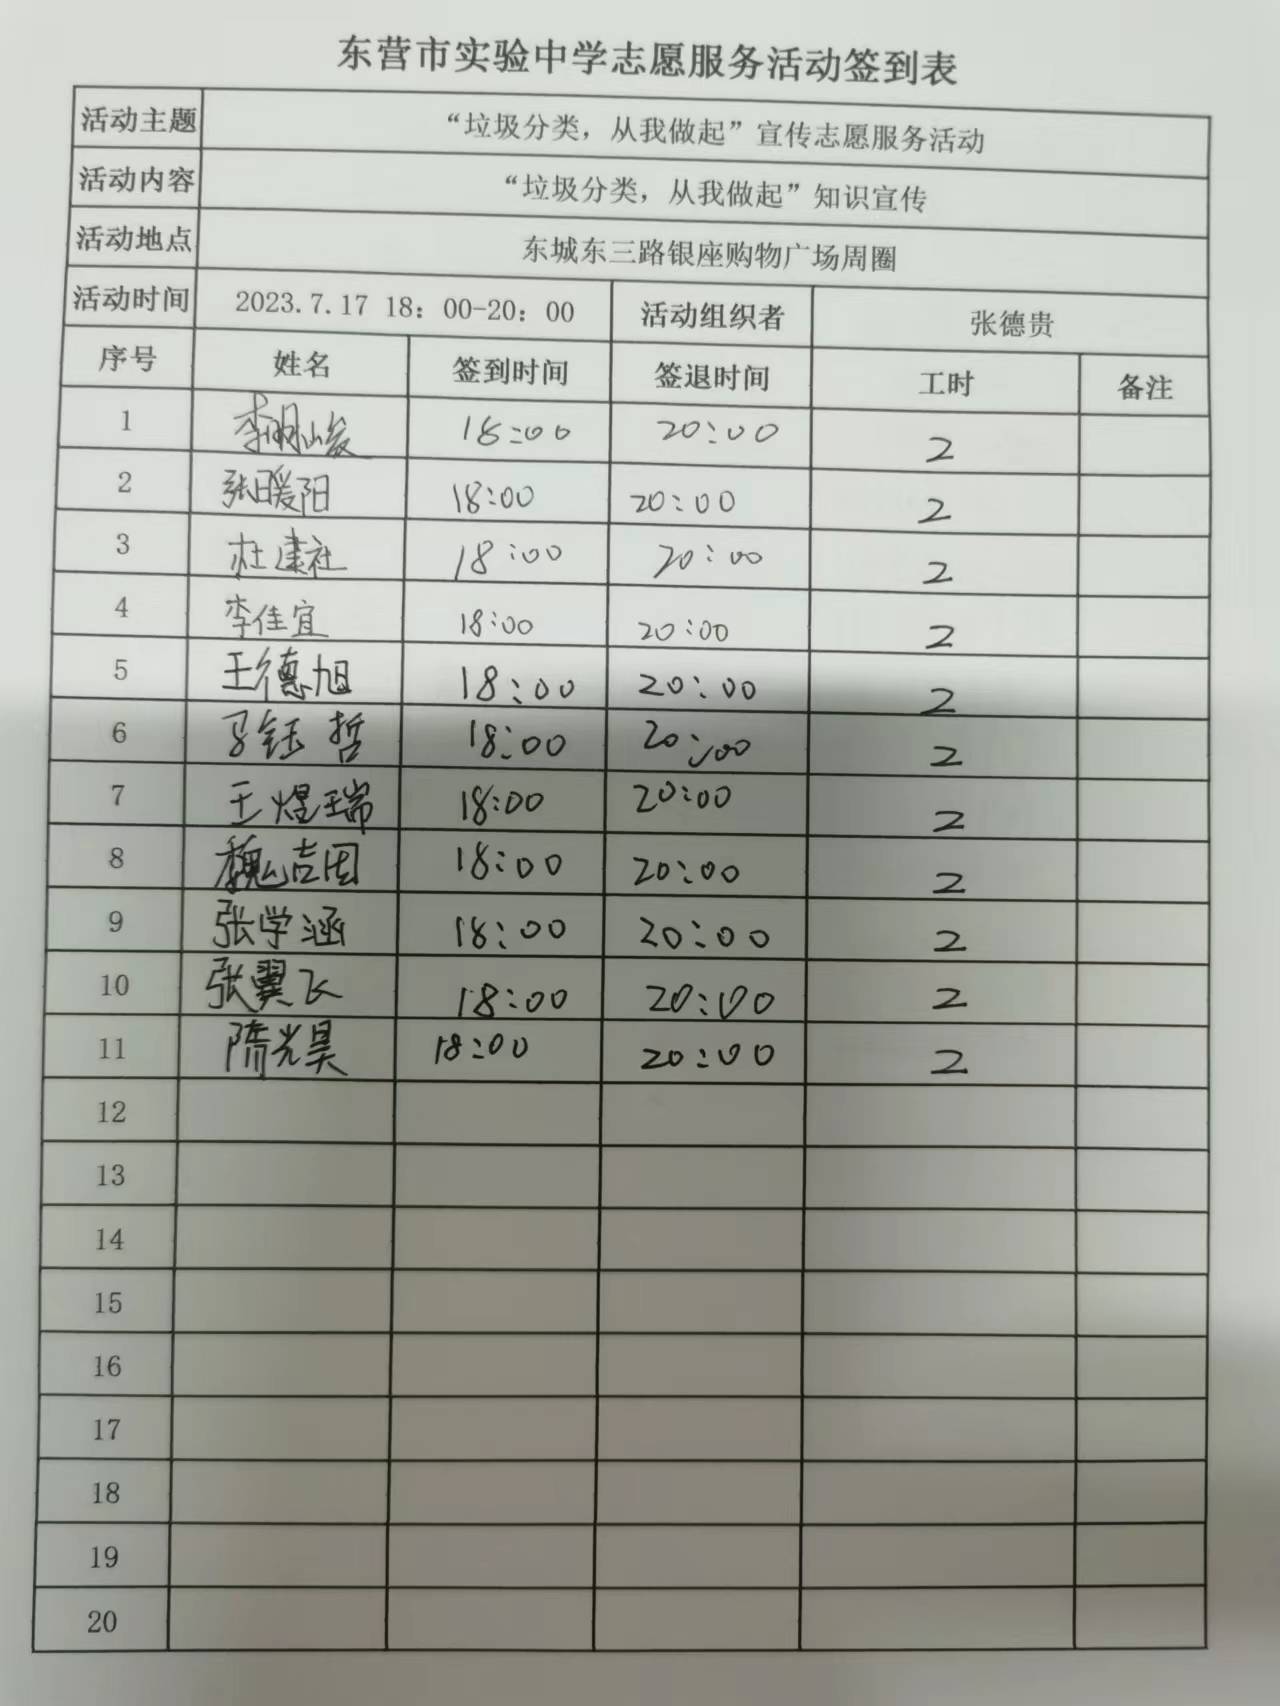 东营市实验中学志愿服务活动签到表
活动主题 “垃圾分类，从我做起”宣传志愿服务活动
活动内容 “垃圾分类，从我做起”知识宣传
活动地点 东城东三路银座购物广场周圈
活动时间 2023.7.17 18：00-20：00 活动组织者 张德贵
序号 姓名 签到时间 签退时间 工时 备注
1 18:00 20:00 2
2 张暖阳 18:00 20:00 2
3 杜建社 18:00 20:00 2
4 李佳宜 18:00 20:00 2
5 王德旭 18:00 20:00 2
6 马钰哲 18:00 20:00 2
7 王煜瑞 18:00 20:00 2
8 18:00 20:00 2
9 张学涵 18:00 20:00 2
10 张翼飞 18:00 20:00 2
11 隋光昊 18:00 20:00 2
12
13
14
15
16
17
18
19
20